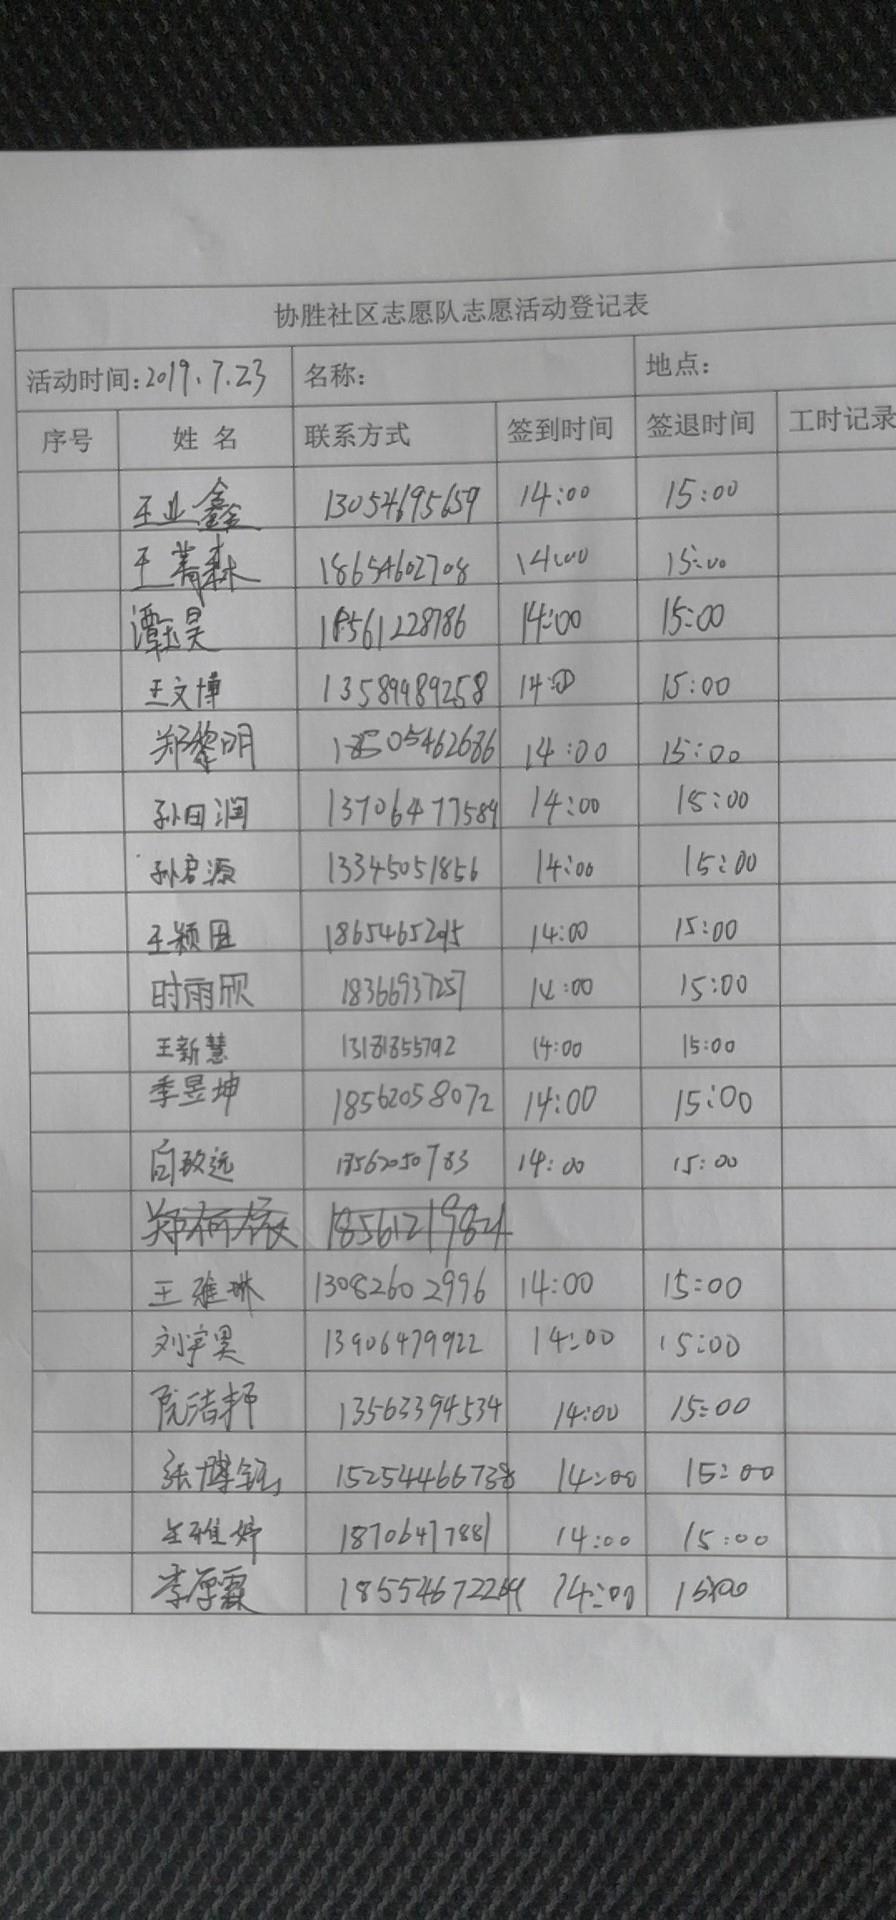 协胜社区志愿队志愿活动登记表
活动时间:2019.7.23 名称: 地点:
序号 姓名 联系方式 签到时间 签退时间 工时记录
王业鑫 13054695659 14:00 15:00
王菁森 18654602708 14:00 15:00
潭钰昊 18561228786 14:00 15:00
王文博 13589989258 14:00 15:00
郑黎明 18505462686 14:00 15:00
孙田润 13706477589 14:00 15:00
孙君源 13345051856 14:00 15:00
王颖 14:00 15:00
时雨欣 18366937257 14:00 15:00
王新慧 13181855792 14:00 15:00
季昱坤 18562058072 14:00 15:00
白致远 14:00 15:00
18561219824
王雅琳 13082602996 14:00 15:00
刘宇昊 13906479922 14:00 15:00
阮洁 13563394534 14:00 15:00
张博钰 15254466738 14:00 15:00
雅婷 18706477881 14:00 15:00
李厚霖 18554672269 14:00 15:00